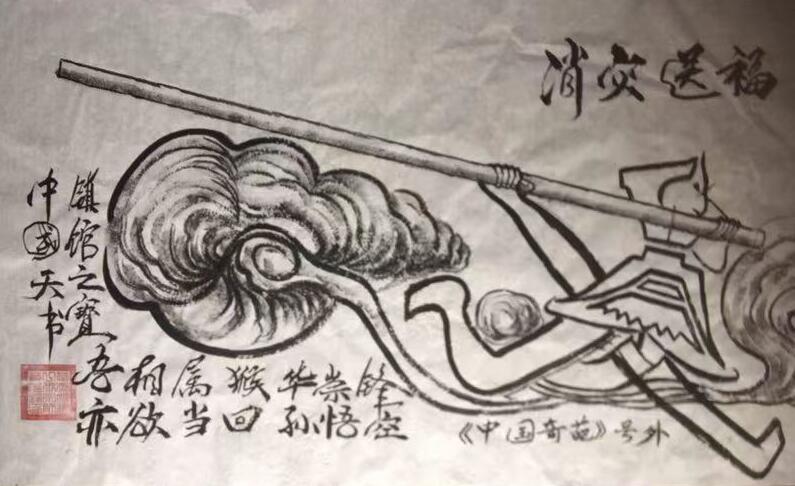 消灾送福
镇馆之寶
中国天书
吾相属猴华崇锋
亦欲当回孙悟空
《中国奇葩》号外